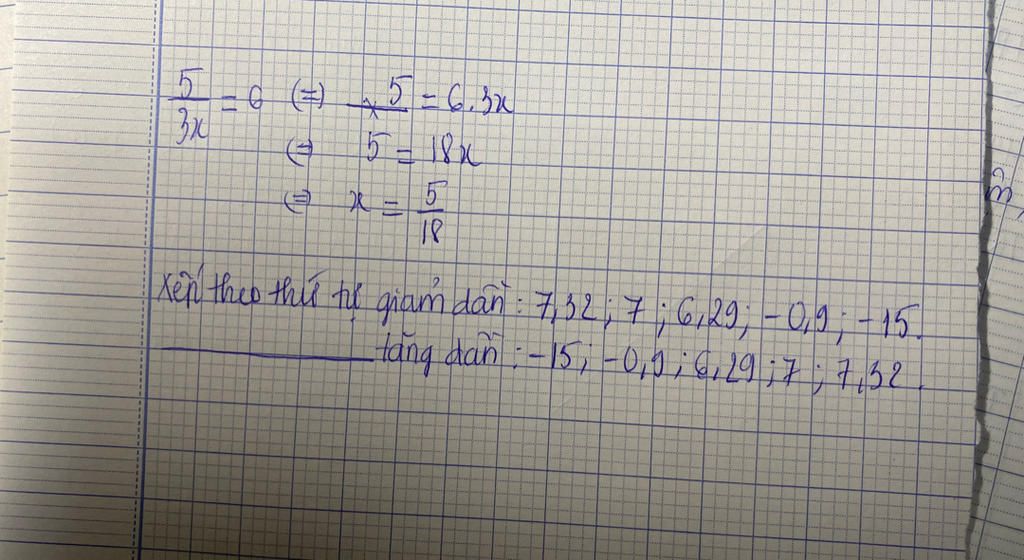 5/3x = 6 (=) 5 = 6.3x
(=) 5 = 18x
(=) x = 5/18
Xếp theo thứ tự giảm dần: 7,32; 7; 6,29; -0,9; -15.
tăng dần: -15; -0,9; 6,29; 7; 7,32.